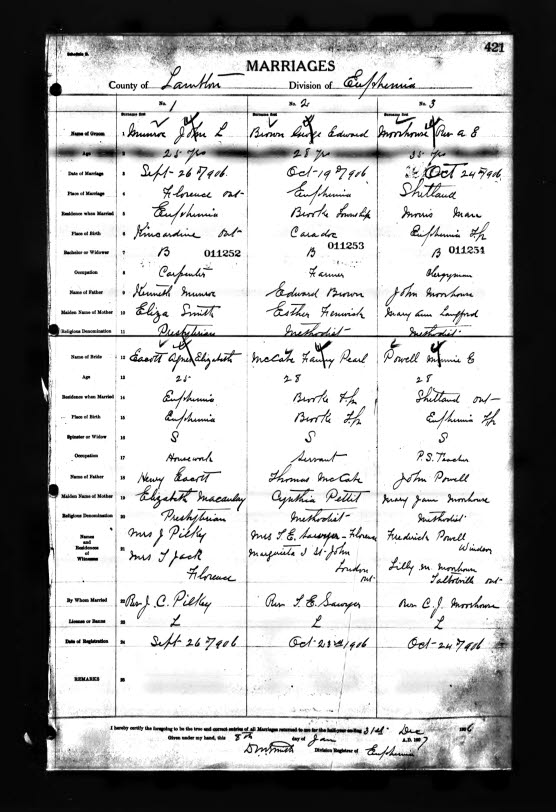 Schedule B.
421
MARRIAGES
County of Lambton Division of Euphemia
No. 1 No. 2 No. 3
Surname first Surname first Surname first
Name of Groom 1 Munro John L Brown George Edward Moorhouse Rev A E
Age 2 25 yrs 28 yrs 35 yrs
Date of Marriage 3 Sept-26th/906. Oct-19th/906. Oct 24th/906.
Place of Marriage 4 Florence ont- Euphemia Shetland
Residence when Married 5 Euphemia Brooke Township Morris Man
Place of Birth 6 Kincardine ont Caradoc Euphemia Tp
Bachelor or Widower 7 B 011252 B 011253 B 011254
Occupation 8 Carpenter Farmer Clergyman
Name of Father 9 Kenneth Munro Edward Brown John Moorhouse
Maiden Name of Mother 10 Eliza Smith Esther Fenwick Mary Ann Langford
Religious Denomination 11 Presbyterian Methodist Methodist
Name of Bride 12 Escott Agnes Elizabeth McCabe Fanny Pearl Powell Minnie E
Age 13 25 28 28
Residence when Married 14 Euphemia Brooke Tp Shetland ont-
Place of Birth 15 Euphemia Brooke Tp Euphemia Tp
Spinster or Widow 16 S S S
Occupation 17 Housework Servant P.S. Teacher
Name of Father 18 Henry Escott Thomas McCabe John Powell
Maiden Name of Mother 19 Elizabeth Macauley Cynthia Pettit Mary Jane Moorhouse
Religious Denomination 20 Presbyterian Methodist Methodist
Names and Residences of Witnesses 21
Mrs J Pilkey Mrs T. E. Sawyer-Florence Fredrick Powell
Windsor
Mrs T Jack Marguerite I St. John Lilly M. Moorhouse
Florence London ont- Talbotville ont-
By Whom Married 22 Rev J. C. Pilkey Rev T. E. Sawyer Rev C. J. Moorhouse
License or Banns 23 L L L
Date of Registration 24 Sept 26th/906 Oct-23rd 1906 Oct-24th/906
REMARKS 25
I hereby certify the foregoing to be the true and correct entries of all Marriages returned to me for the half-year ending 31st Dec 1906
Given under my hand, this 8th day of Jan A.D. 1907
Division Registrar of Euphemia